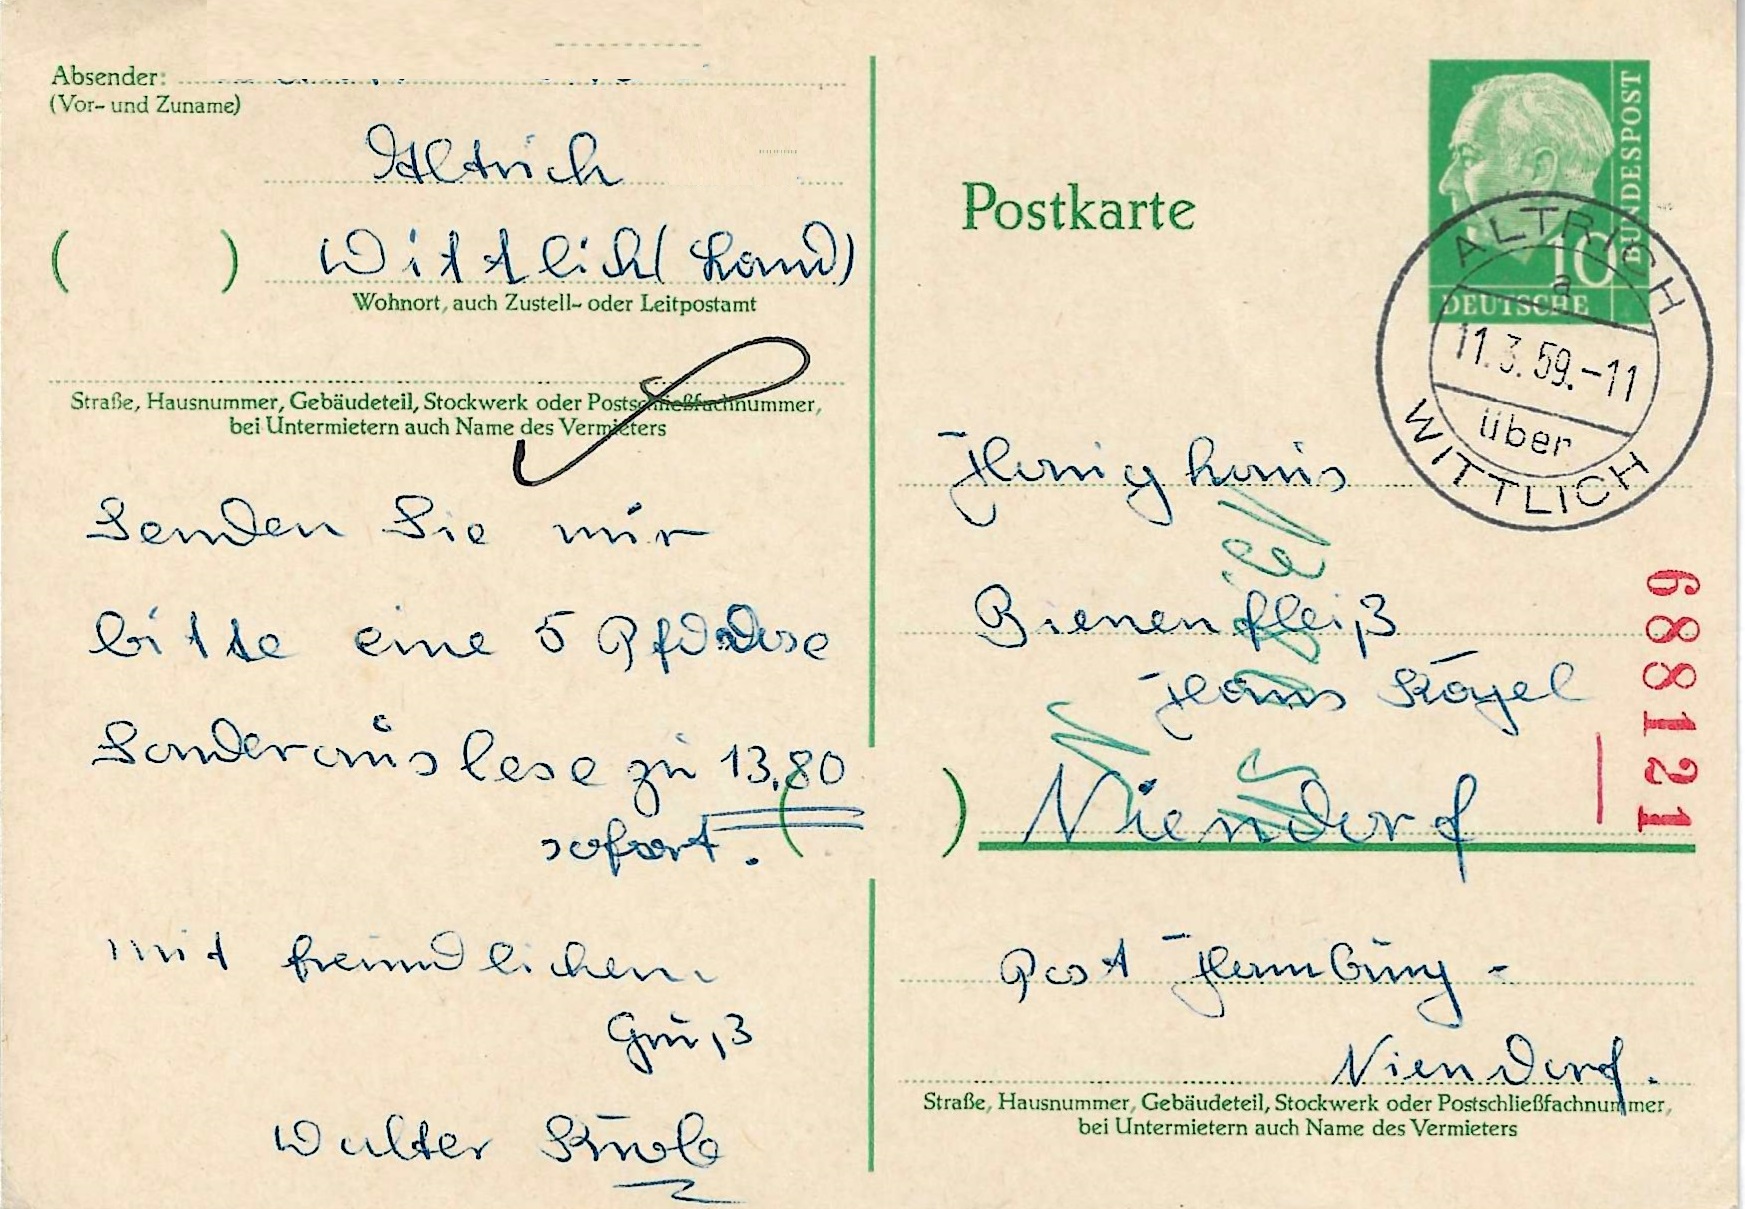 Absender:
(Vor- und Zuname)
Altrich
( ) Wittlich (Land)
Wohnort, auch Zustell- oder Leitpostamt
Straße, Hausnummer, Gebäudeteil, Stockwerk oder Postschließfachnummer,
bei Untermietern auch Name des Vermieters
Senden Sie mir
bitte eine 5 Pfddose
Sonderauslese zu 13,80
sofort.
mit freundlichem
Gruß
Walter
Postkarte
DEUTSCHE
BUNDESPOST
10
ALTRICH
a
11.3.59.-11
über
WITTLICH
Honighaus
Bienenfleiß
Hans Kögel
( ) Niendorf
Post Hamburg-
Niendorf.
Straße, Hausnummer, Gebäudeteil, Stockwerk oder Postschließfachnummer,
bei Untermietern auch Name des Vermieters
688121